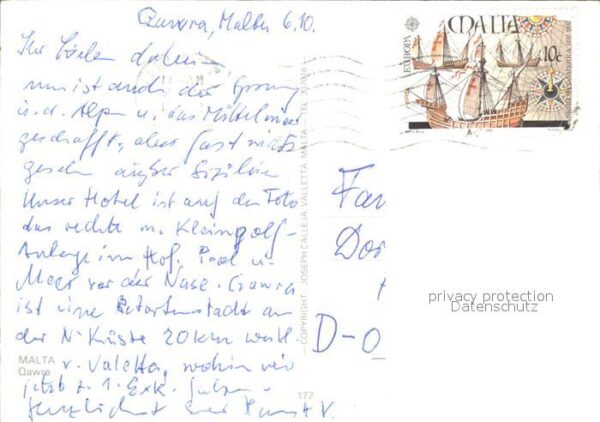 Qawra, Malta 6.10.
Ihr Lieben daheim,
nun ist auch der Sprung
ü. d. Alpen u. das Mittelmeer
geschafft, aber fast nichts
gesehn außer Sizilien
Unser Hotel ist auf dem Foto
das rechte m. Kleingolf-
Anlage im Hof, Pool u.
Meer vor der Nase. Qawra
ist eine Retortenstadt an
der N-Küste 20 km westl.
v. Valetta, wohin wir
jetzt z. 1. Exk. fahren.
Herzlichst
MALTA
Qawra
172
— COPYRIGHT - JOSEPH CALLEJA, VALLETTA, MALTA
EUROPA
MALTA
10c
Fa
Do
D-O
privacy protection
Datenschutz